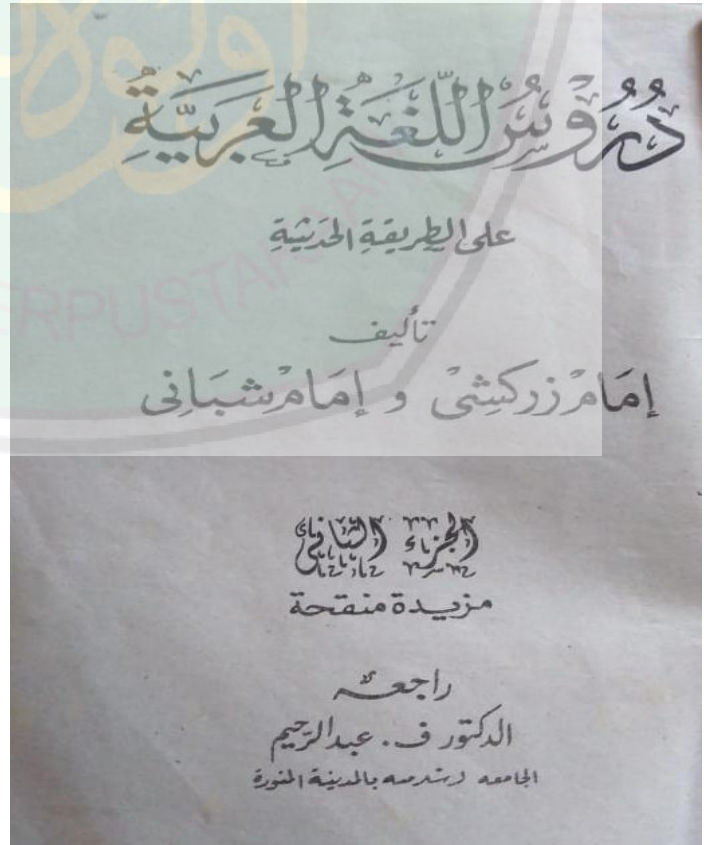 دُرُوسُ اللُّغَةِ الْعَرَبِيَّةِ
على الطريقة الحديثة
تأليف
إمام زركشى و إمام شبانى
الجزء الثانى
مزيدة منقحة
راجعه
الدكتور ف. عبد الرحيم
الجامعه بالمدينة المنورة
ERPUSTAKAA